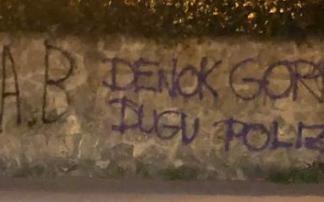 A.B
DENOK GOR
DUGU POLIZ